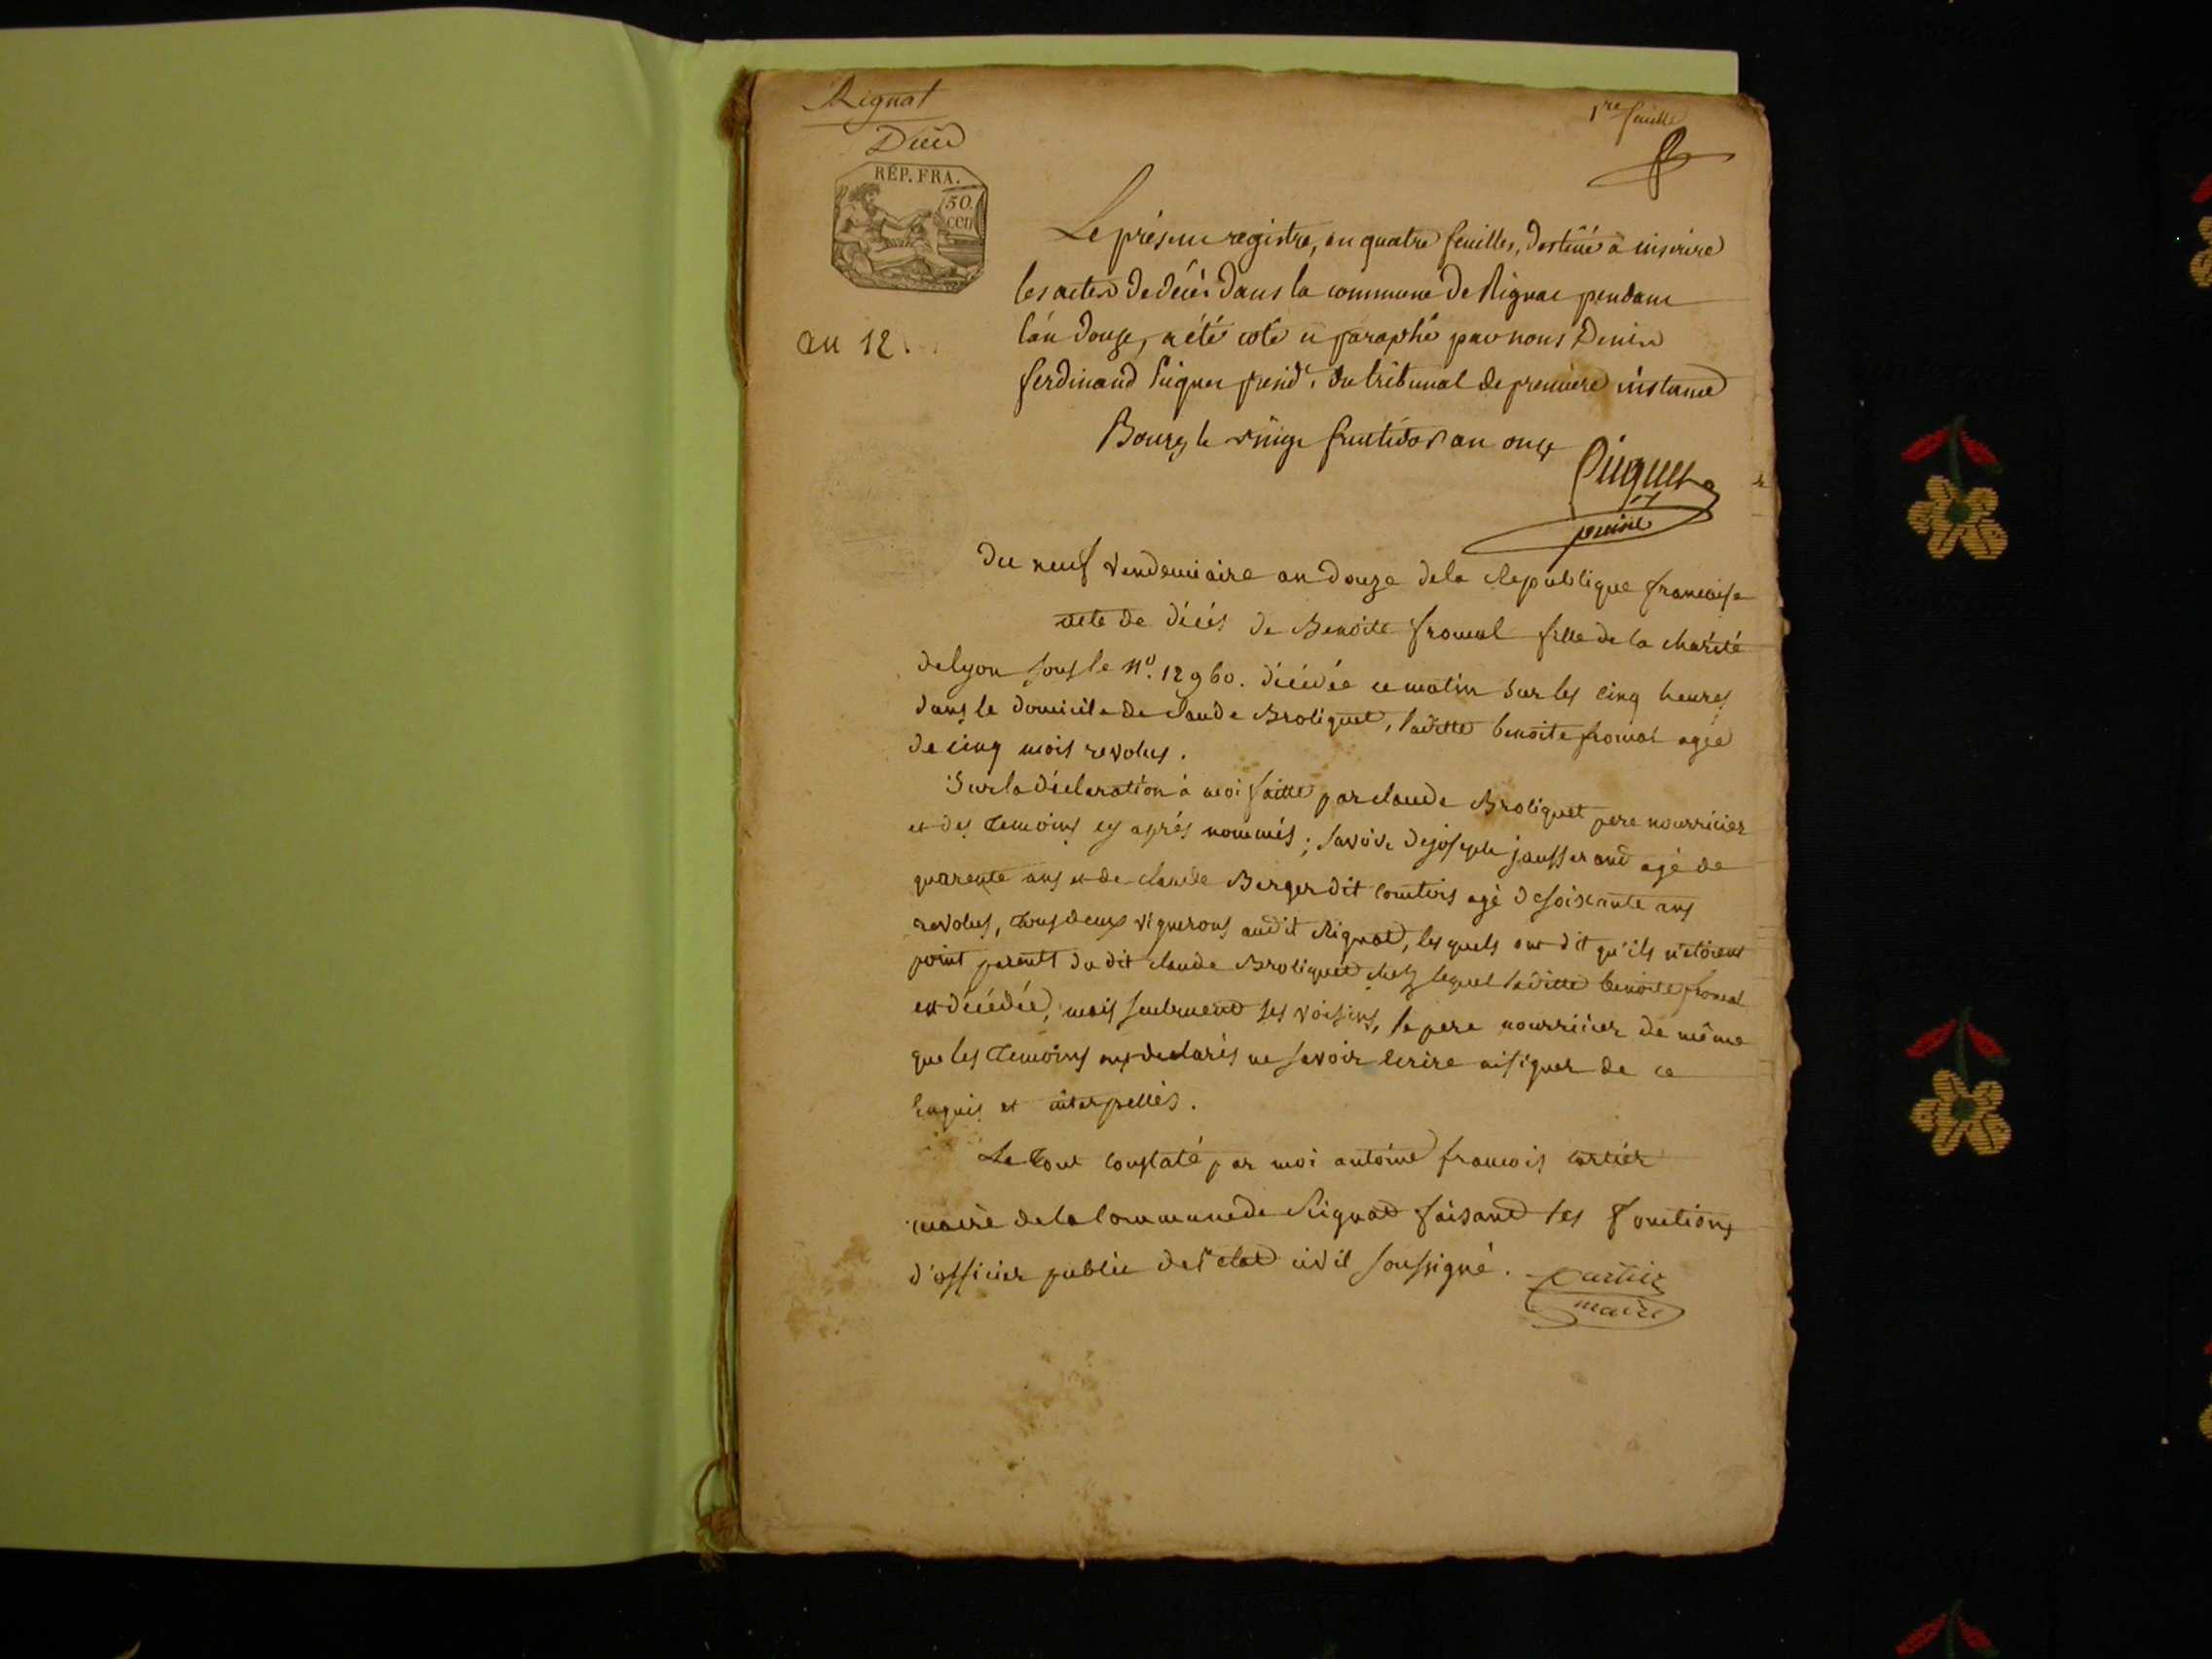 Rignat
1re feuille
Décès
RÉP. FRA.
50.
cen
Le présent registre, en quatre feuilles, destiné à inscrire
les actes de décès dans la commune de Rignat pendant
l'an douze, a été coté et paraphé par nous Denis
an 12.
ferdinand Piquet présidt. du tribunal de première instance
Bourg le vingt fructidor an onze
Piquet
Du neuf vendemiaire an douze de la Republique francaise
acte de décés de Benoite fromal fille de la charité
de lyon sous le No. 12960. décédée ce matin sur les cinq heures
dans le domicile de claude Broliquet, laditte benoite fromal agée
de cinq mois revolus.
Sur la déclaration à moi faitte par claude Broliquet pere nourricier
et des temoins cy aprés nommés; savoir de joseph jausserand agé de
quarente ans et de claude Berger dit comtois agé de soixante ans
revolus, tous deux vignerons audit Rignat, lesquels ont dit qu'ils n'etoient
point parents du dit claude Broliquet chez lequel laditte benoite fromal
est décédée, mais seulement ses voisins, le pere nourricier de même
que les temoins ont declarés ne savoir ecrire ni signer de ce
enquis et interpellés.
Le tout constaté par moi antoine francois cartier
maire de la commune de Rignat faisant les fonctions
d'officier public de l'etat civil soussigné. cartier
maire